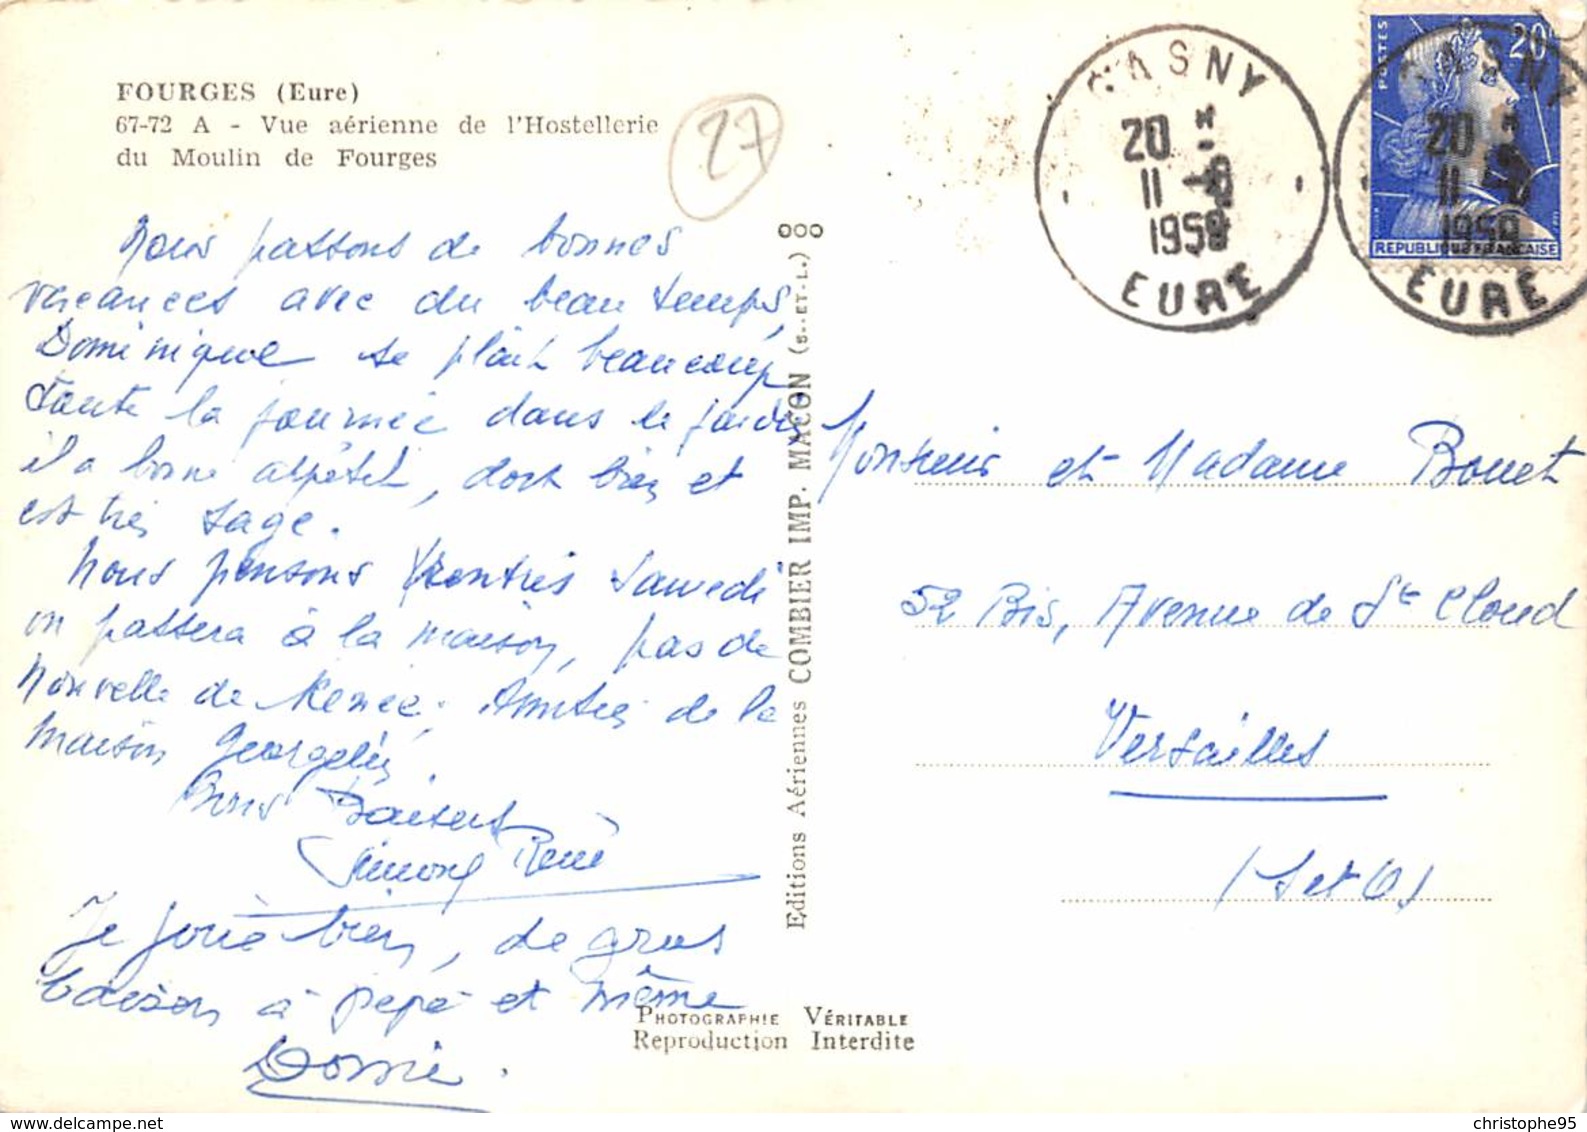 FOURGES (Eure)
67-72 A - Vue aérienne de l'Hostellerie
du Moulin de Fourges
27
Nous passons de bonnes
vacances avec du beau temps,
Dominique se plait beaucoup
toute la journée dans le jardin
il a bonne appétit, dort bien et
est très sage.
Nous pensons rentrés Samedi
on passera à la maison, pas de
nouvelle de Renée. Amitiés de la
maison Georgelin.
Bons Baisers
Simone René
Je joue bien, de gros
baisers à pépé et mémé
Domi.
Editions Aériennes COMBIER IMP. MACON (S.-ET-L.)
PHOTOGRAPHIE VÉRITABLE
Reproduction Interdite
GASNY
20
11
1959
EURE
POSTES
20
REPUBLIQUE FRANCAISE
GASNY
20
11
1959
EURE
Monsieur et Madame Bouet
52 Bis, Avenue de St Cloud
Versailles
(S et O)
christophe95